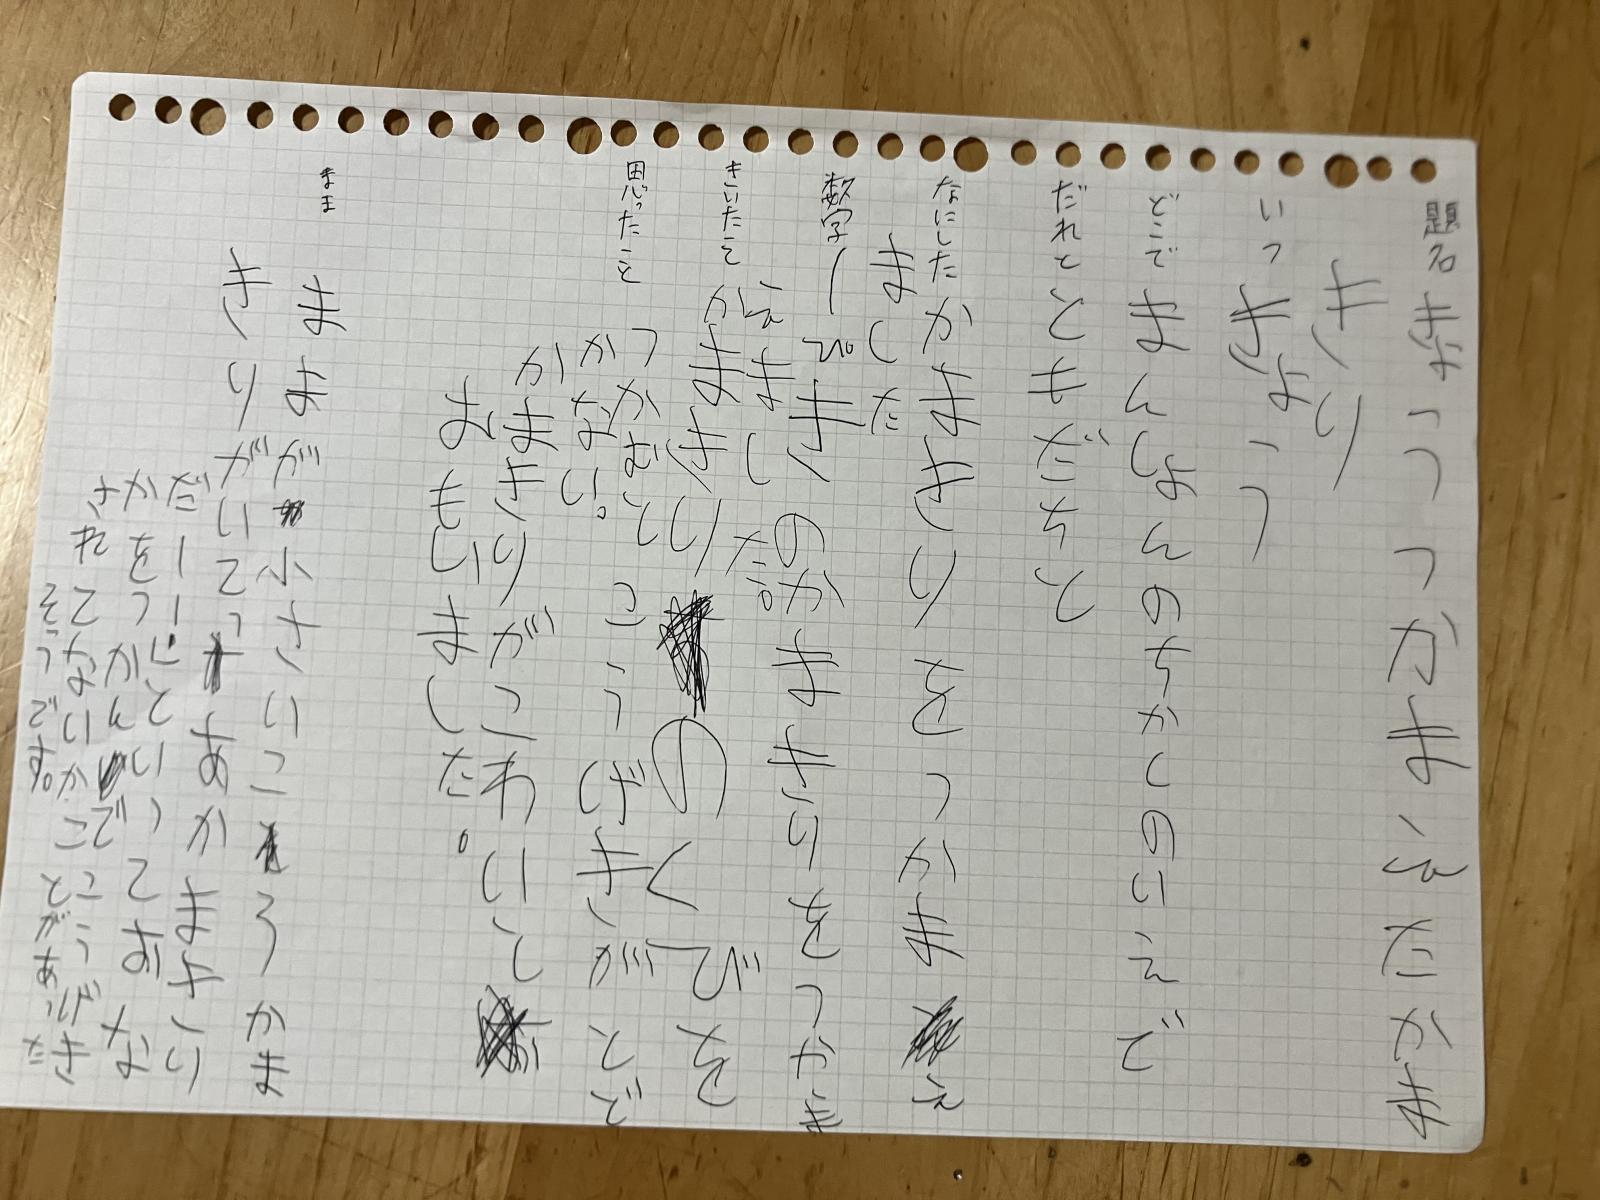 題名 きょうつかまえたかま
きり
いつ きょう
どこで まんしょんのちかくのいえで
だれと ともだちと
なにした かまきりをつかまえ
ました
数字 1ぴきくのかまきりをつかま
えました。
きいたこと かまきりのくびを
つかむと こうげきがとで
かなない。
思ったこと かまきりがこわいと
おもいました。
まま ままが小さいころかま
きりがいて あかまきり
だーーといっておな
かをつかんでこうげき
されてないかことがあった
そうです。